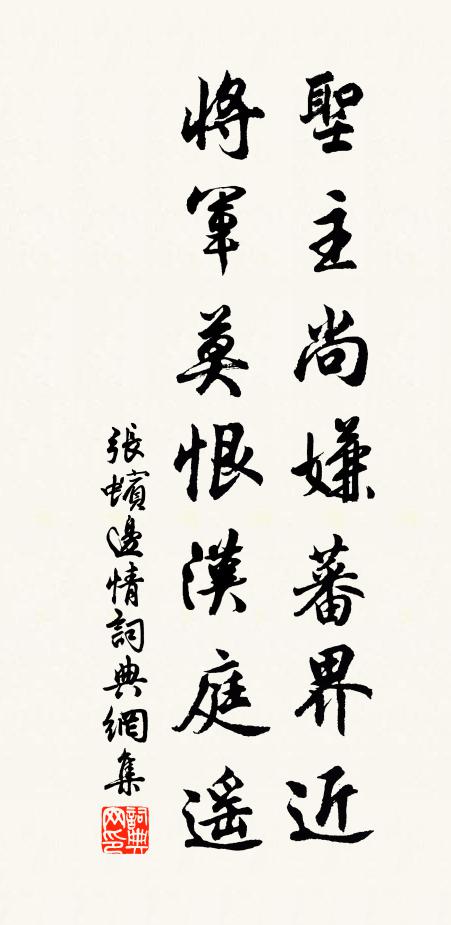 聖主尚嫌蕃界近
將軍莫恨漢庭遥
張蠙邊情詞典網集
詞典网印